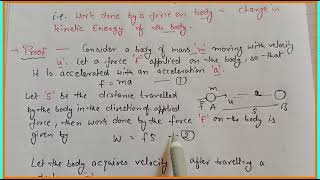 i.e. Work done by a force on body = change in
kinetic Energy of the body
Proof — Consider a body of mass 'm' moving with velocity
'u'. Let a force 'F' applied on the body, so that
it is accelerated with an acceleration 'a'
f = ma — ①
Let 'S' be the distance travelled
by the body in the direction of applied
force, then work done by the force 'F' on the body is
given by
W = FS — ②
Let the body acquires velocity after travelling a
F
u
s
a
A
B